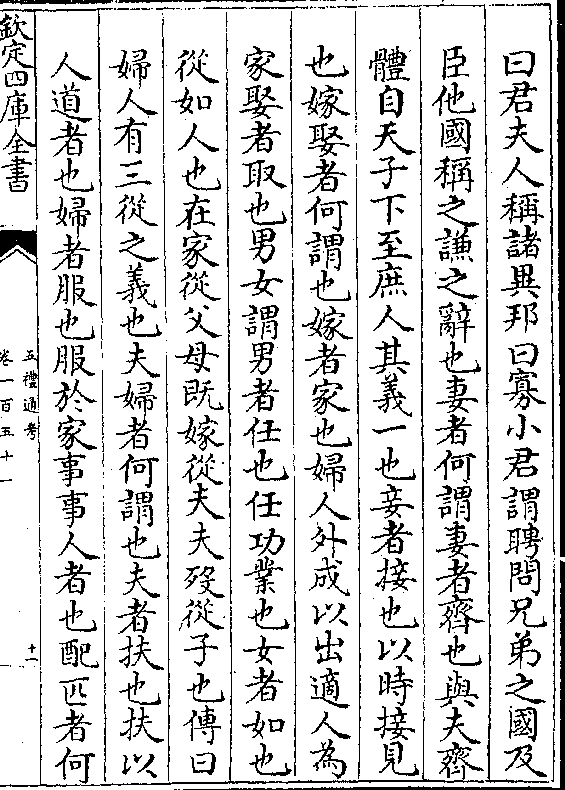 曰君夫人稱諸異邦曰寡小君謂聘問兄弟之國及
臣他國稱之謙之辭也妻者何謂妻者齊也與夫齊
體自天子下至庶人其義一也妾者接也以時接見
也嫁娶者何謂也嫁者家也婦人外成以出適人為
家娶者取也男女謂男者任也任功業也女者如也
從如人也在家從父母既嫁從夫夫歿從子也傳曰
婦人有三從之義也夫婦者何謂也夫者扶也扶以
人道者也婦者服也服於家事事人者也配匹者何
欽定四庫全書
五禮通考
卷一百五十一
十一